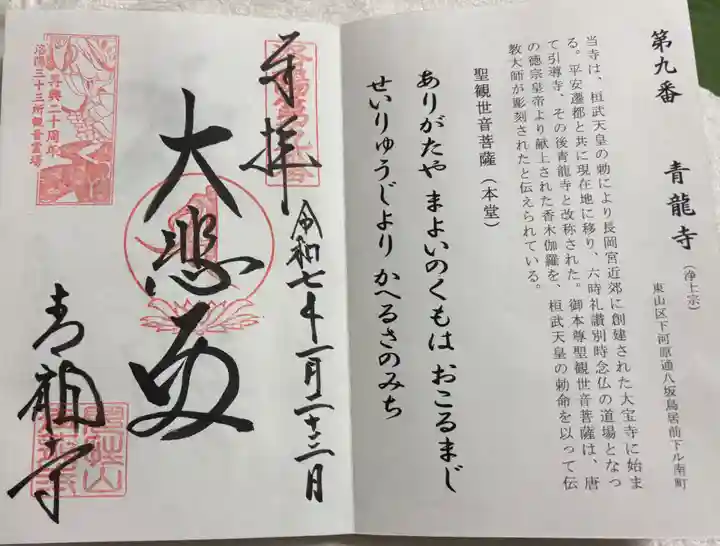 第九番 青龍寺(浄土宗)
東山区下河原通八坂鳥居前下ル南町
当寺は、桓武天皇の勅により長岡宮近郊に創建された大宝寺に始ま
る。平安遷都と共に現在地に移り、六時礼讃別時念仏の道場となっ
て引導寺、その後青龍寺と改称された。御本尊聖観世音菩薩は、唐
の徳宗皇帝より献上された香木伽羅を、桓武天皇の勅命を以って伝
教大師が彫刻されたと伝えられている。
聖観世音菩薩(本堂)
ありがたや まよいのくもは おこるまじ
せいりゅうじより かへるさのみち
奉拝
洛陽第九番
令和七年一月二十三日
大悲殿
再興二十周年
洛陽三十三所観音霊場
青龍寺